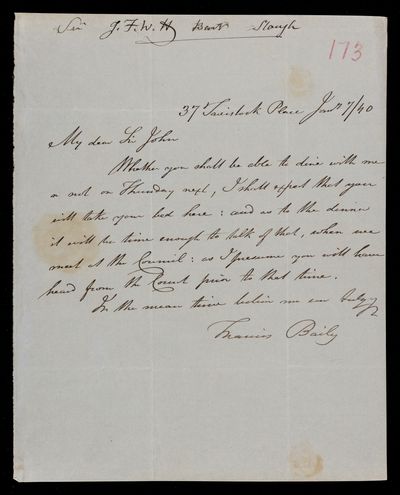 Sir J.F.W.H Bart Slough
173
37 Tavistock Place Jany 7/40
My dear Sir John
Whether you shall be able to dine with me
or not on Thursday next, I shall expect that you
will take your bed here: and as to the dinner
it will be time enough to talk of that, when we
meet at the Council: as I presume you will have
heard from the Court prior to that time.
In the mean time believe me ever truly yrs
Francis Baily